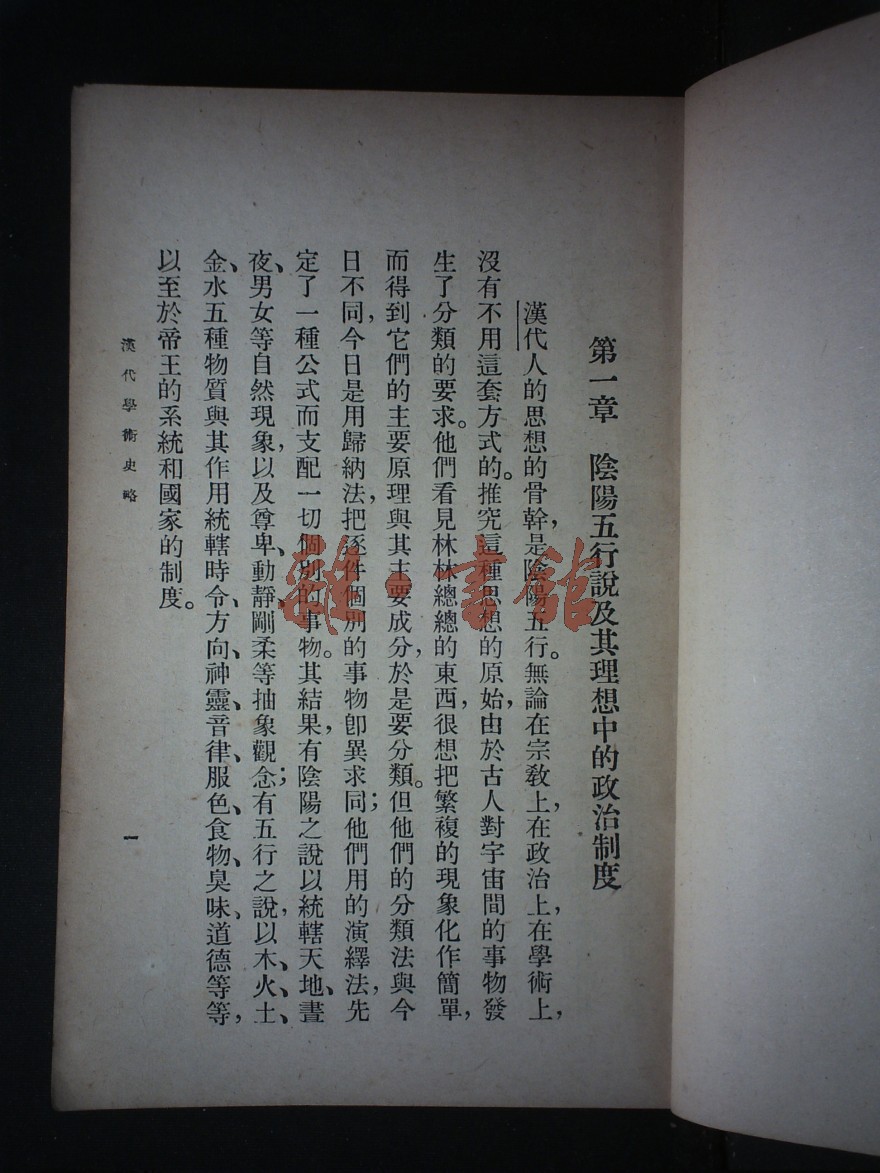 第一章　陰陽五行說及其理想中的政治制度
漢代人的思想的骨幹，是陰陽五行。無論在宗教上，在政治上，在學術上，
沒有不用這套方式的。推究這種思想的原始，由於古人對宇宙間的事物發
生了分類的要求。他們看見林林總總的東西，很想把繁複的現象化作簡單，
而得到它們的主要原理與其主要成分，於是要分類。但他們的分類法與今
日不同，今日是用歸納法，把逐件個別的事物卽異求同；他們用的演繹法，先
定了一種公式而支配一切個別的事物。其結果，有陰陽之說以統轄天、地、晝、
夜、男女等自然現象，以及尊卑、動靜、剛柔等抽象觀念；有五行之說，以木、火、土、
金、水五種物質與其作用統轄時令、方向、神靈、音律、服色、食物、臭味、道德等等，
以至於帝王的系統和國家的制度。
漢代學術史略
一
雜·書館